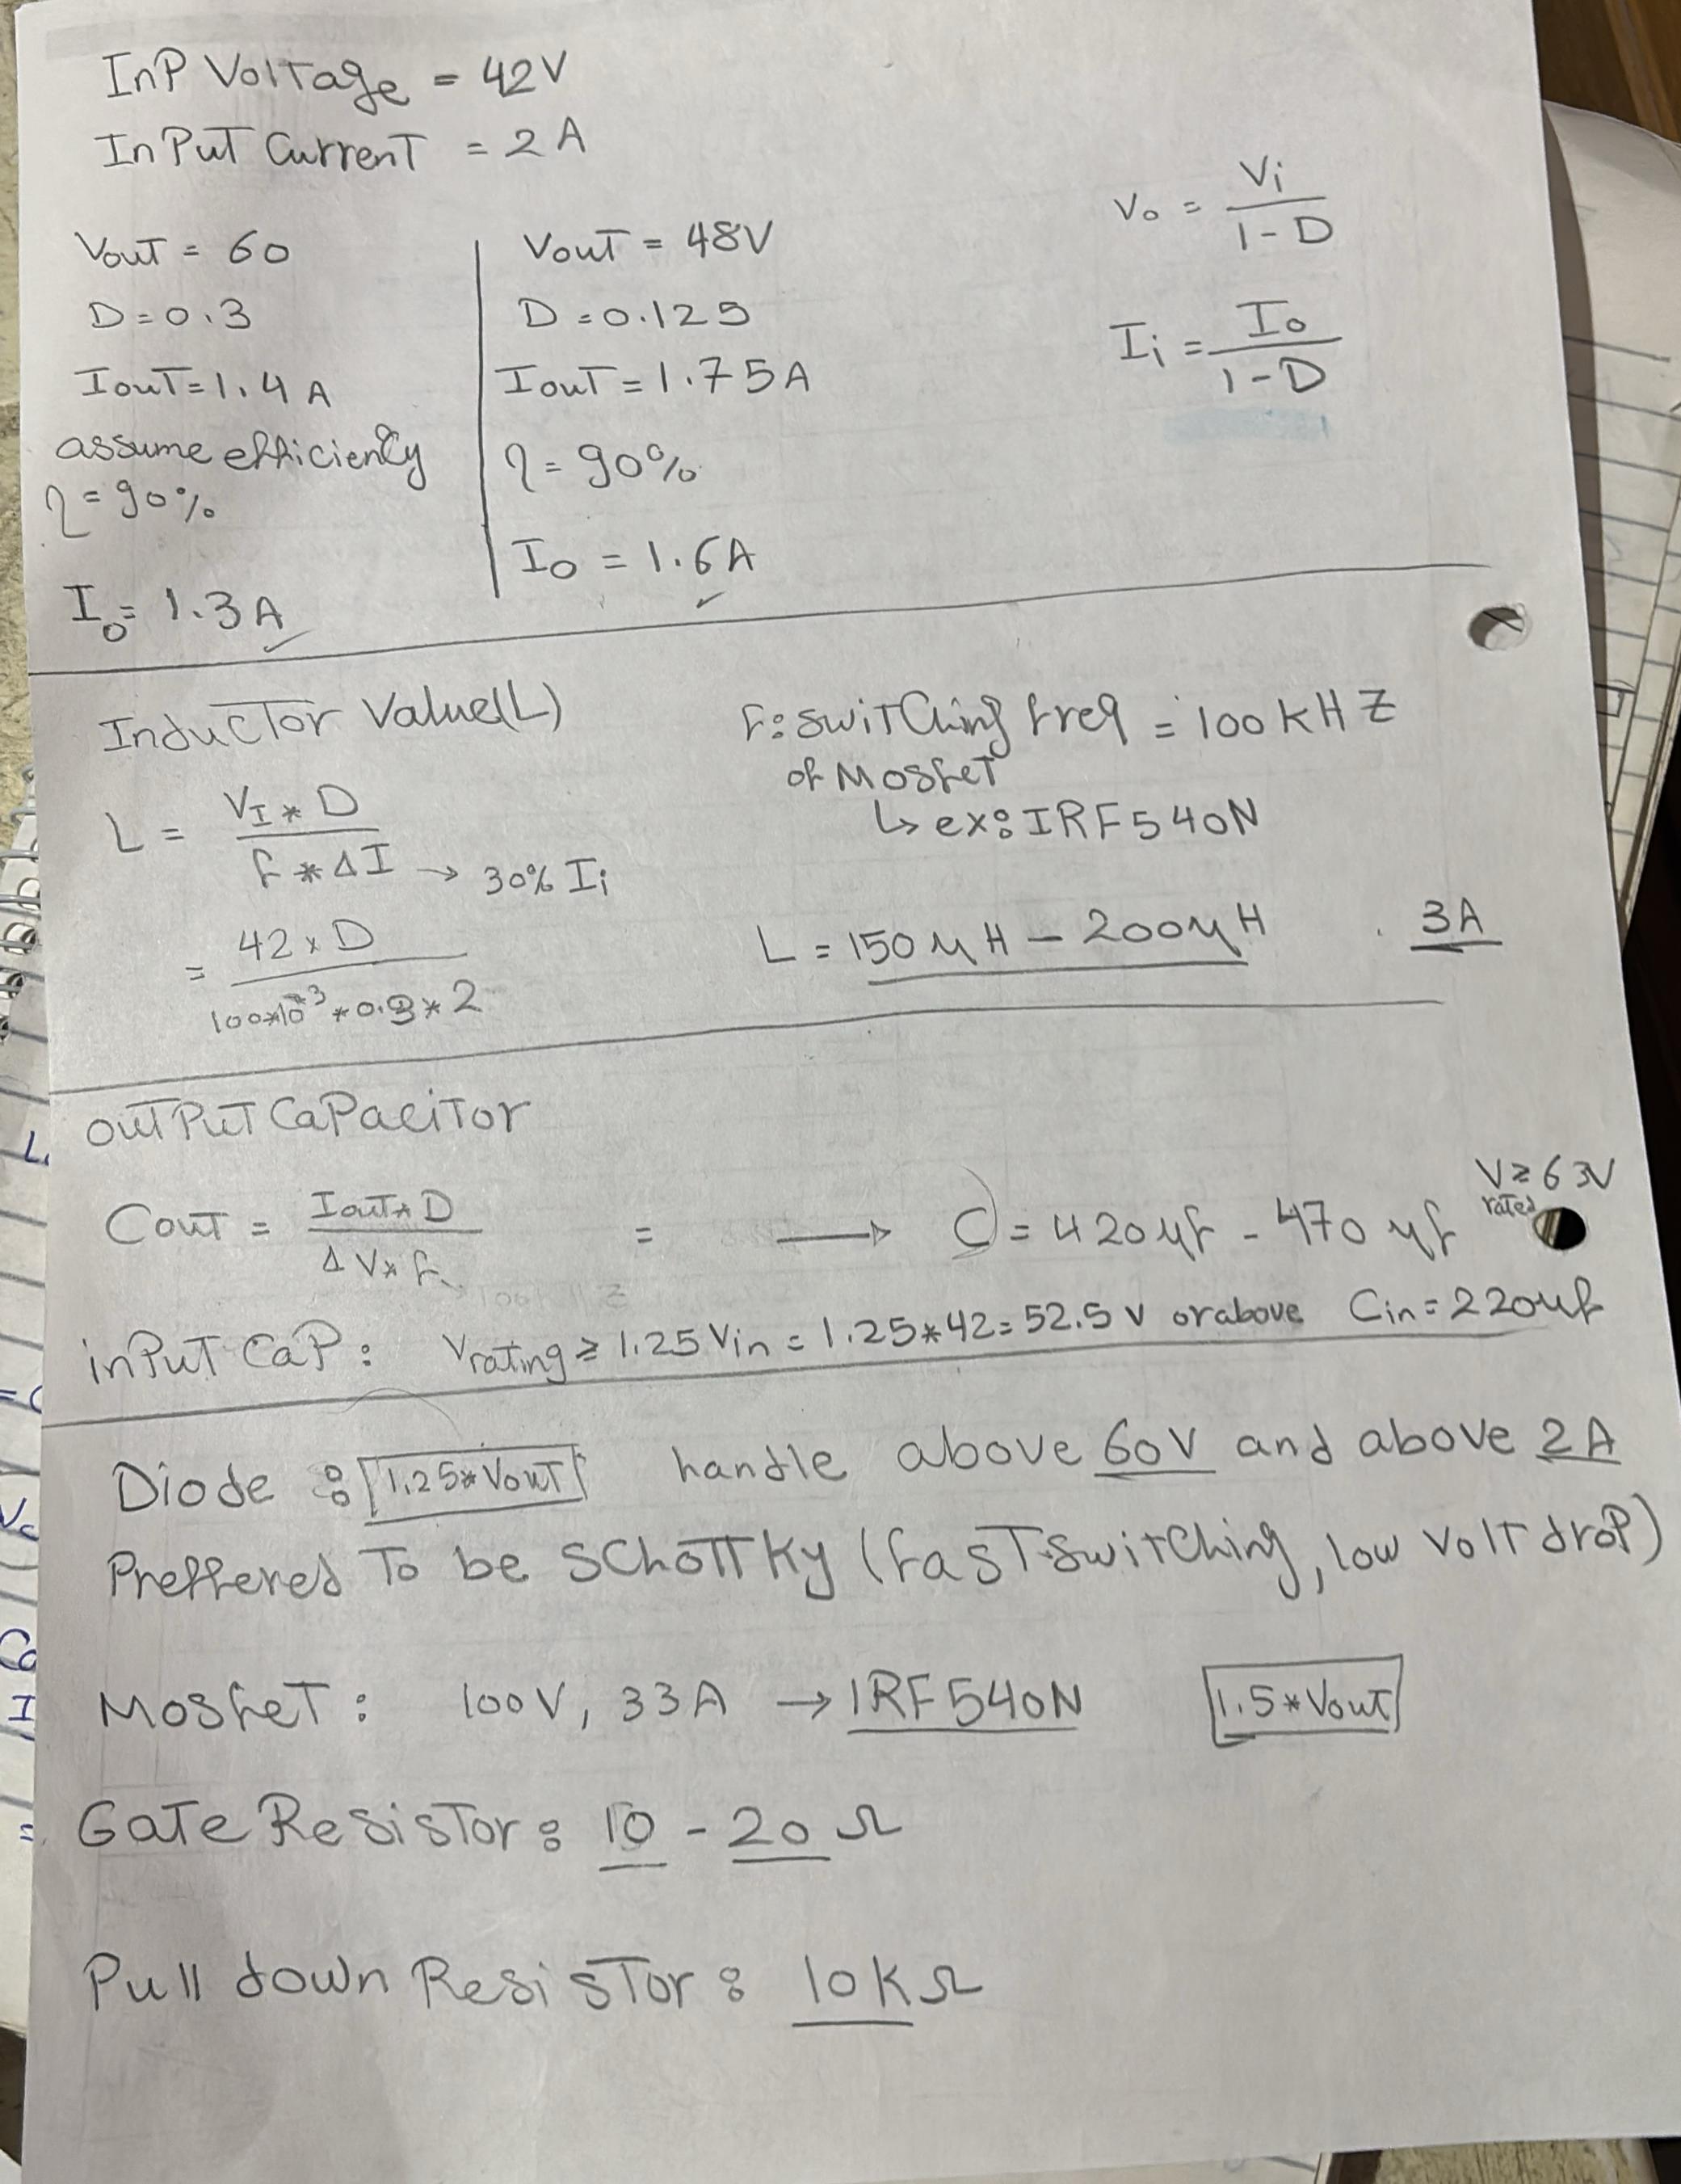 InP Voltage = 42V
InPut Current = 2 A
Vout = 60
D = 0.3
Iout = 1.4 A
assume efficiency
η = 90%
Io = 1.3 A
Vout = 48V
D = 0.125
Iout = 1.75 A
η = 90%
Io = 1.6 A
Vo = Vi / 1 - D
Ii = Io / 1 - D
Inductor Value(L)
L = VI * D / F * ΔI → 30% Ii
= 42 × D / 100*10^+3 * 0.3 * 2
F: switching freq = 100 KHZ
of Mosfet
↳ ex: IRF540N
L = 150 μH - 200 μH . 3A
outPut CaPacitor
Cout = Iout * D / ΔV * F = → C = 420 μF - 470 μF V ≥ 63V
rated
inPut CaP: Vrating ≥ 1.25 Vin = 1.25*42 = 52.5 V or above Cin = 220 uf
Diode : 1.25*Vout handle above 60V and above 2A
Preffered To be SChottky (fast switching, low volt droP)
Mosfet : 100V, 33A → IRF540N 1.5*Vout
Gate Resistor : 10 - 20 Ω
Pull down Resistor : 10KΩ